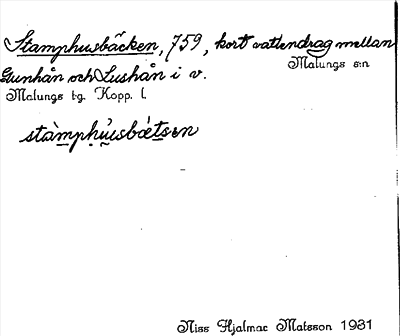 Stamphusbäcken, 759, kort vattendrag mellan
Gunhån och Lushån i v.
Malungs s:n
Malungs tg. Kopp. l.
stàmphụ̀sbǽtsen
Niss Hjalmar Matsson 1931